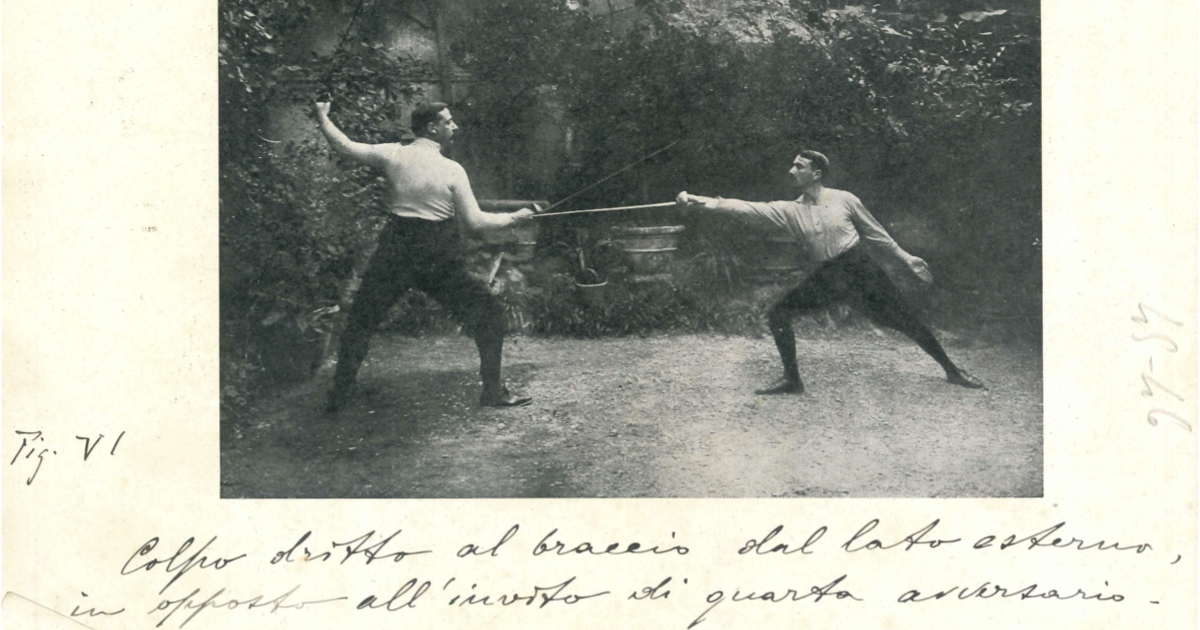 Fig. VI
Colpo dritto al braccio dal lato esterno,
in opposto all'invito di quarta avversario -